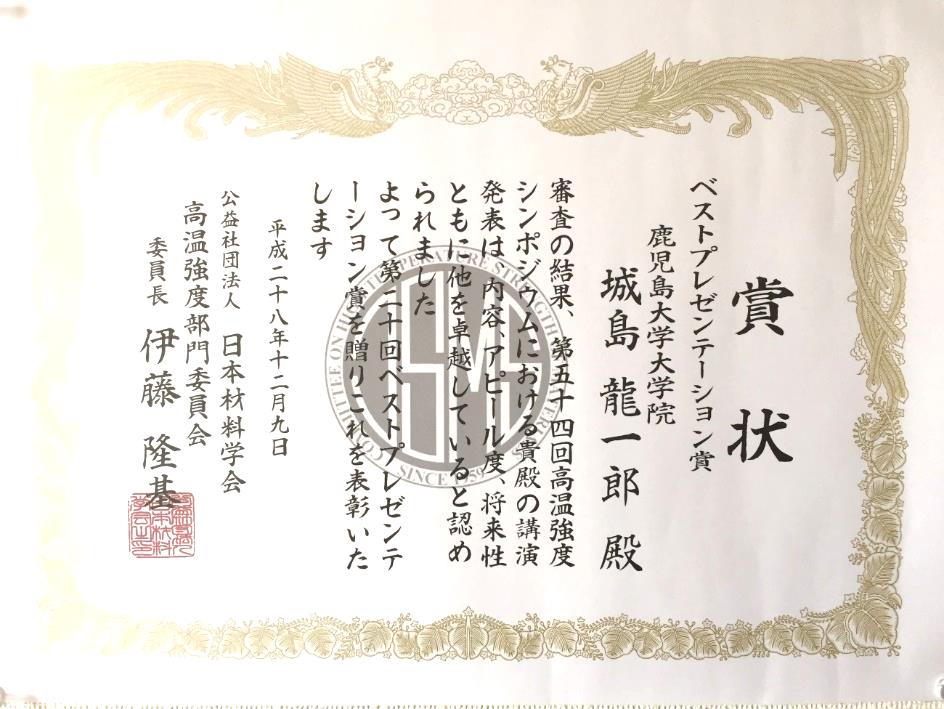 賞状
ベストプレゼンテーション賞
鹿児島大学大学院
城島 龍一郎 殿
審査の結果、第五十四回高温強度
シンポジウムにおける貴殿の講演
発表は、内容、アピール度、将来性
ともに他を卓越していると認め
られました
よって第二十回ベストプレゼンテ
ーション賞を贈りこれを表彰いた
します
平成二十八年十二月九日
公益社団法人 日本材料学会
高温強度部門委員会
委員長 伊藤 隆基
COMMITTEE ON HIGH TEMPERATURE STRENGTH OF MATERIALS
SINCE 1959